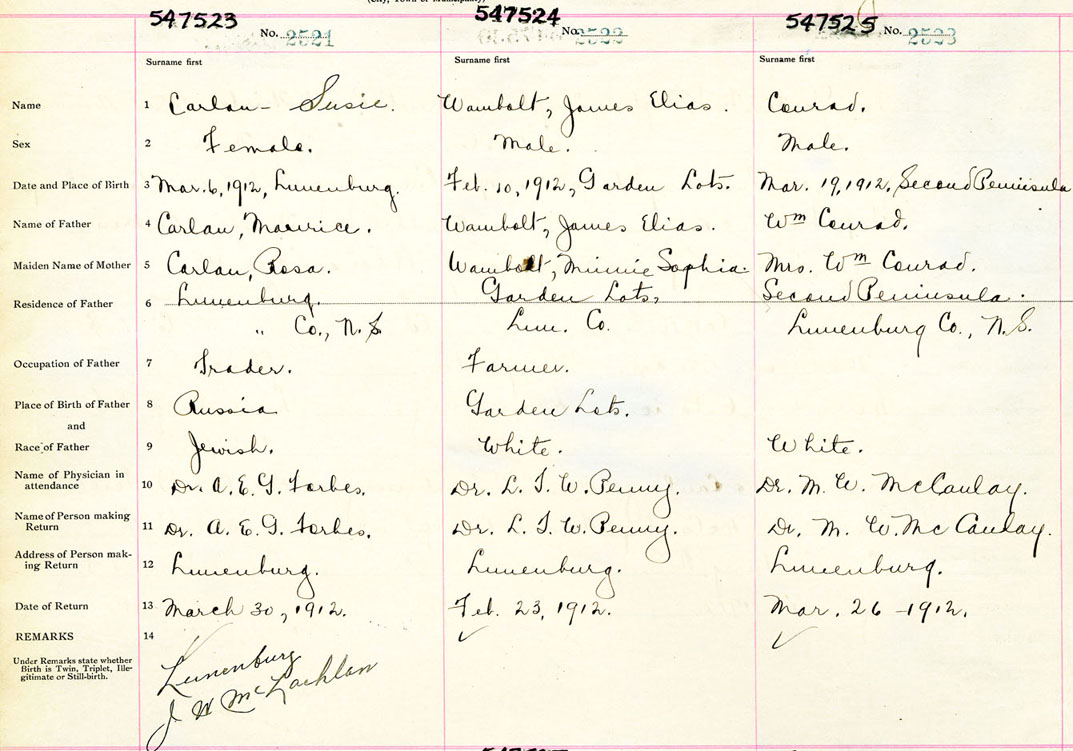 (City, Town or Municipality)
547523 547524 547525
No. 2521 No. 2522 No. 2523
Surname first Surname first Surname first
Name 1 Carlau - Susie. Wambolt, James Elias. Conrad.
Sex 2 Female. Male. Male.
Date and Place of Birth 3 Mar. 6, 1912, Lunenburg. Feb. 10, 1912, Garden Lots. Mar. 19, 1912, Second Peninsula
Name of Father 4 Carlau, Maurice. Wambolt, James Elias. Wm Conrad.
Maiden Name of Mother 5 Carlau, Rosa. Wambolt, Minnie Sophia. Mrs. Wm Conrad.
Residence of Father 6 Lunenburg. Garden Lots, Second Peninsula.
" Co., N.S. Lun. Co. Lunenburg Co., N.S.
Occupation of Father 7 Trader. Farmer.
Place of Birth of Father 8 Russia Garden Lots.
and
Race of Father 9 Jewish. White. White.
Name of Physician in
attendance 10 Dr. A. E. G. Forbes. Dr. L. T. W. Penny. Dr. M. W. McCaulay.
Name of Person making
Return 11 Dr. A. E. G. Forbes. Dr. L. T. W. Penny. Dr. M. W. McCaulay.
Address of Person mak-
ing Return 12 Lunenburg. Lunenburg. Lunenburg.
Date of Return 13 March 30, 1912. Feb. 23, 1912. Mar. 26 - 1912.
REMARKS 14 ✓ ✓
Under Remarks state whether
Birth is Twin, Triplet, Ille-
gitimate or Still-birth.
Lunenburg
J W McLachlan